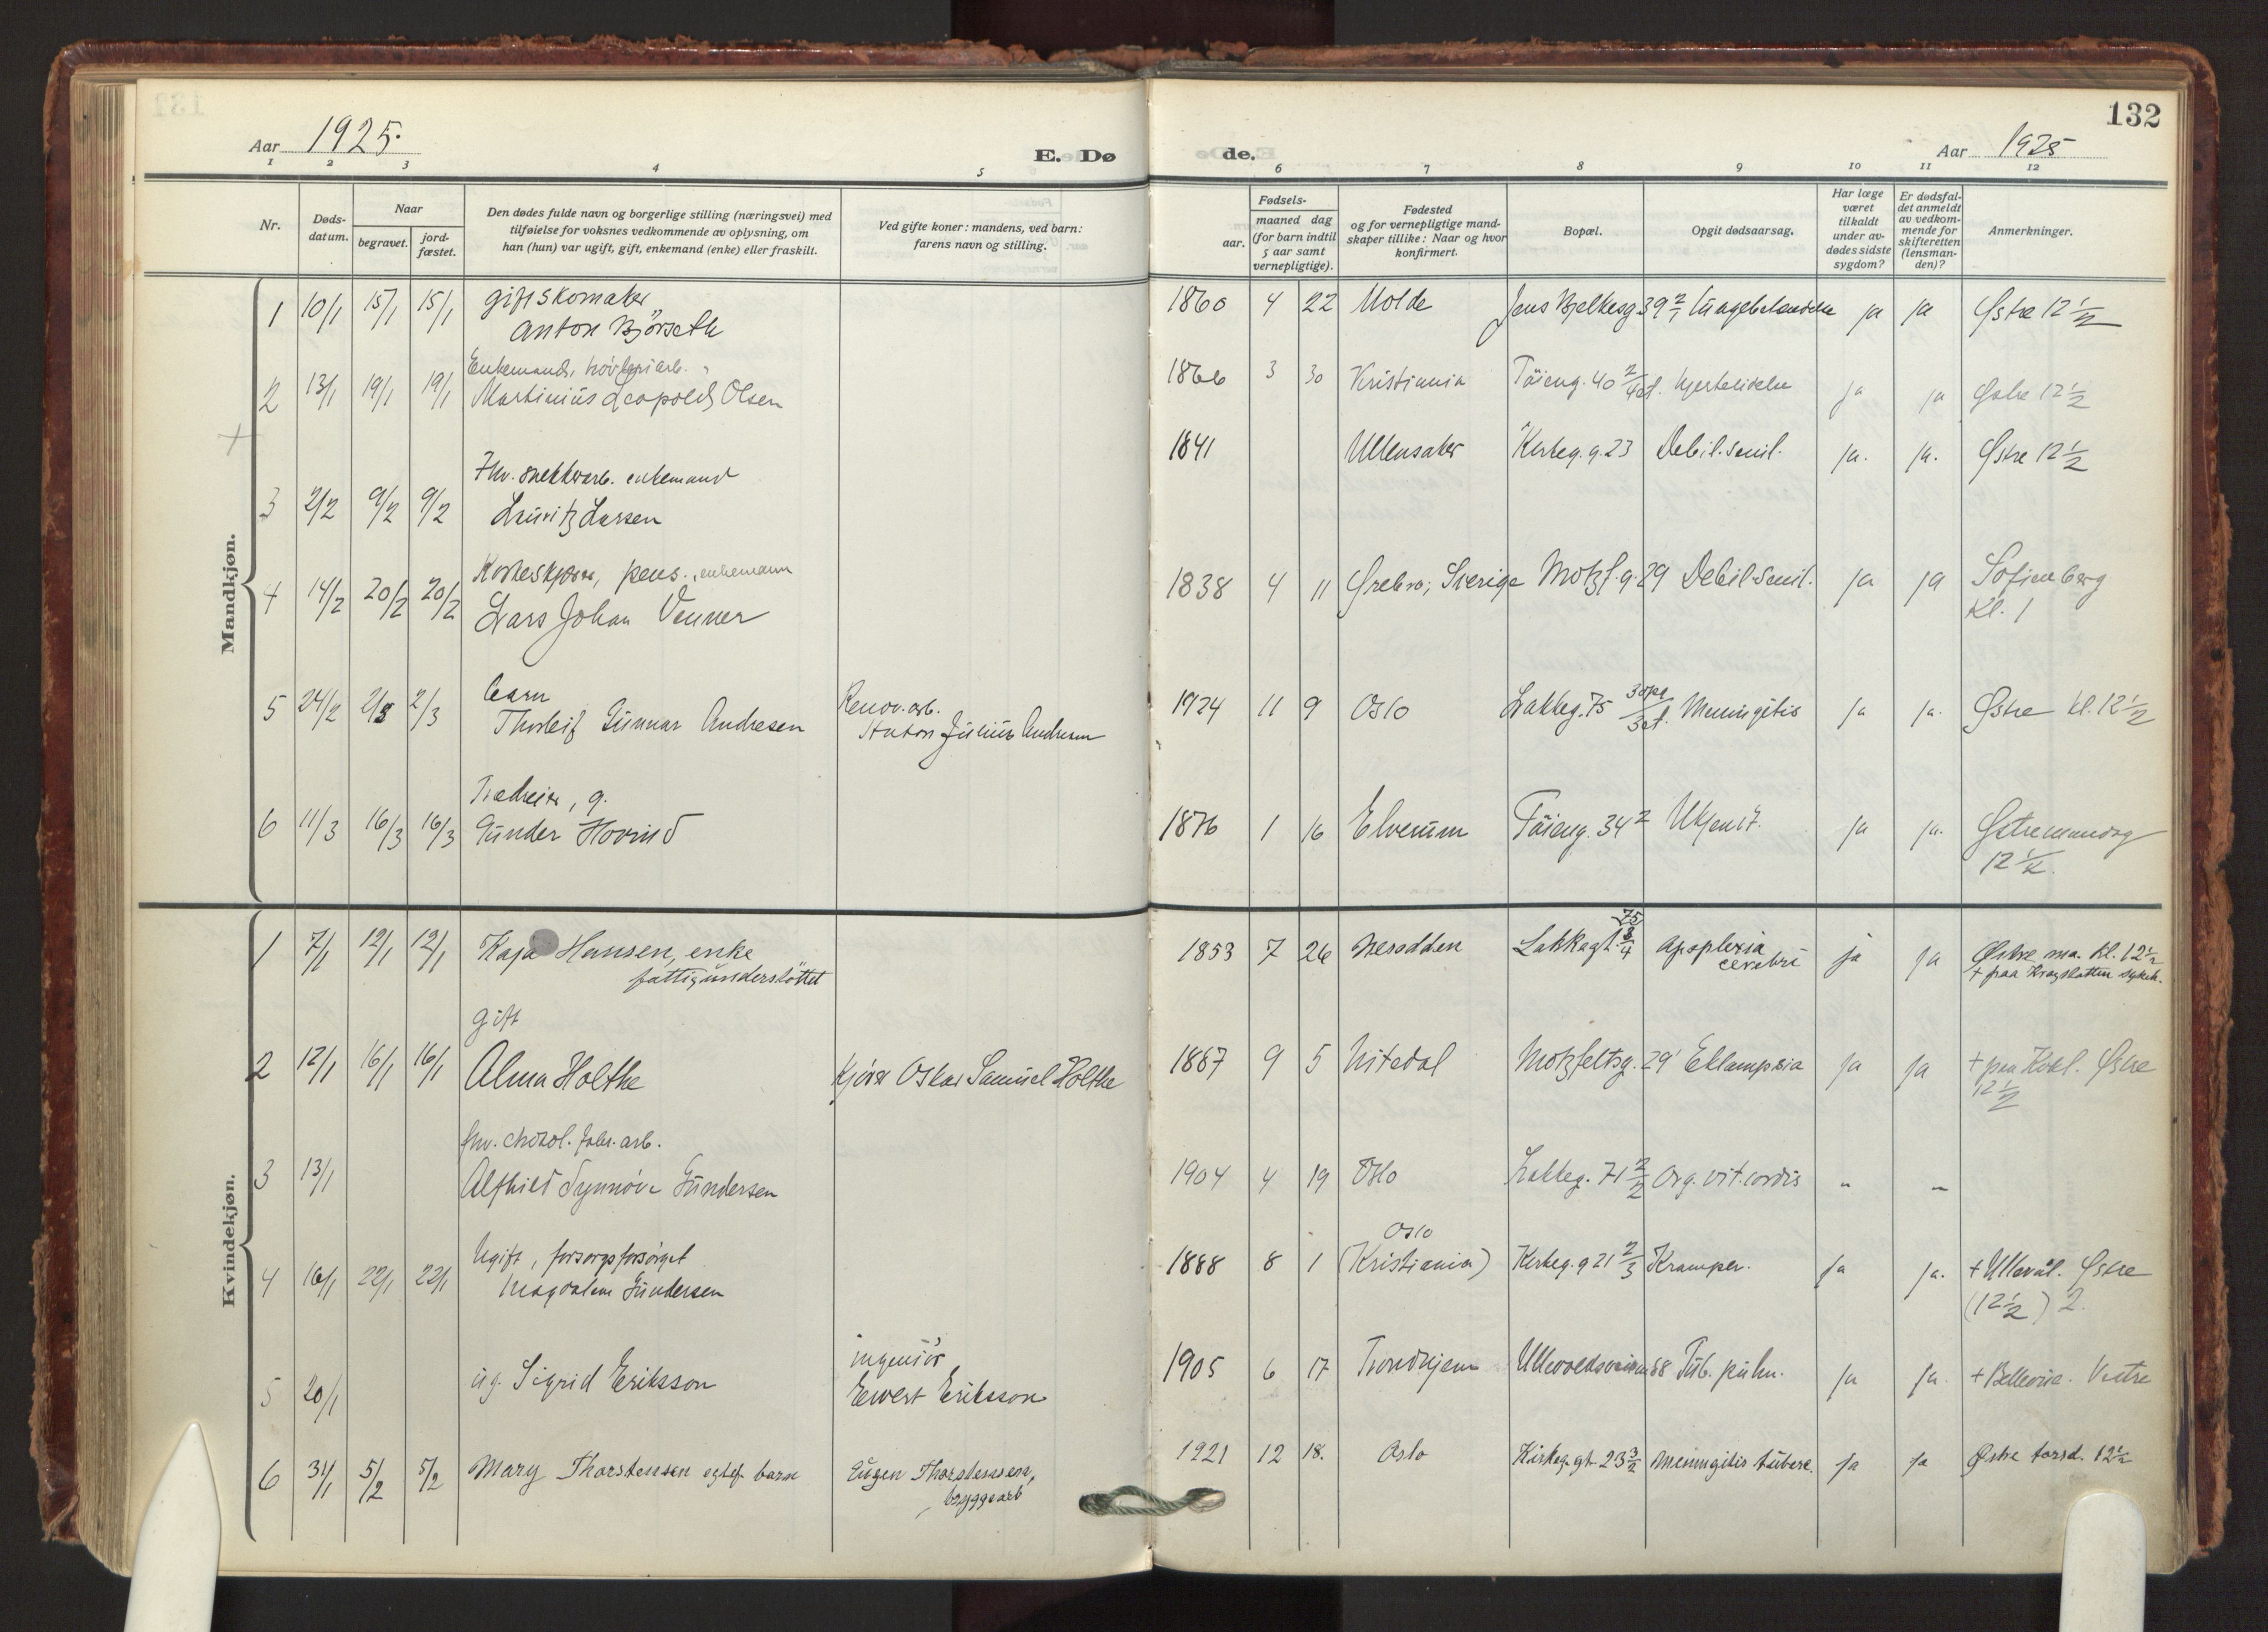 132
Aar 1925.
E. Dø
de.
Aar 1925
1 2 3 4 5 6 7 8 9 10 11 12
Nr.
Døds-
datum.
Naar
begravet.
jord-
fæstet.
Den dødes fulde navn og borgerlige stilling (næringsvei) med
tilføielse for voksnes vedkommende av oplysning, om
han (hun) var ugift, gift, enkemand (enke) eller fraskilt.
Ved gifte koner: mandens, ved barn:
farens navn og stilling.
Fødsels-
aar.
maaned dag
(for barn indtil
5 aar samt
vernepligtige).
Fødested
og for vernepligtige mand-
skaper tillike: Naar og hvor
konfirmert.
Bopæl.
Opgit dødsaarsag.
Har læge
været
tilkaldt
under av-
dødes sidste
sygdom?
Er dødsfal-
det anmeldt
av vedkom-
mende for
skifteretten
(lensman-
den)?
Anmerkninger.
Mandkjøn.
gift skomaker
1 10/1 15/1 15/1 Anton Bjørseth 1860 4 22 Molde Jens Bjelkesg. 39 2/1 ja ja Østre 12 1/2
Enkemand, høvleriarb.
2 13/1 19/1 19/1 Martinius Leopold Olsen 1866 3 30 Kristiania Tøieng. 40 2/4 et. hjertelidelse ja ja Østre 12 1/2
Fhv. snekkerarb. enkemand
3 2/2 9/2 9/2 Lauritz Larsen 1841 Ullensaker Kirkeg. g. 23 Debil. senil. ja. ja. Østre 12 1/2
Korkeskjærer, pens. enkemann
4 14/2 20/2 20/2 Lars Johan Venner 1838 4 11 Ørebro, Sverige Motzf. g. 29 Debil. senil. ja ja Sofienberg
Kl. 1
barn Renov. arb.
5 24/2 2/3 2/3 Thorleif Gunnar Andresen Anton Julius Andresen 1924 11 9 Oslo Lakkeg. 75 3 opg/3 et. Meningitis ja ja. Østre kl. 12 1/2
g.
6 11/3 16/3 16/3 Gunder Hovind 1876 1 16 Elverum Tøieng. 34 2 Ukjent. ja ja. Østre mandag
12 1/2.
Kvindekjøn.
1 7/1 12/1 12/1 Kaja Hansen, enke 1853 7 26 Nesodden Lakkagt. 75 3/4 Apoplexia ja ja Østre ma. kl. 12 1/2
fattigunderstöttet cerebri + paa Krogstøtten sykeh.
gift
2 12/1 16/1 16/1 Alma Holthe Kjører Oskar Samuel Holthe 1887 9 5 Nitedal Motzfeltsg. 29 1 Eklampsia ja ja + paa Kvkl. Østre
12 1/2
fhv. chokol. fabr. arb.
3 13/1 Alfhild Synnöve Gundersen 1904 4 19 Oslo Lakkeg. 71 2/2 Org. vit. cordis - -
Ugift, forsorgsforsörget Oslo
4 16/1 22/1 22/1 Magdalene Gundersen 1888 8 1 (Kristiania) Kirkeg. g 21 2/3 Kramper. ja ja. + Ullevål. Østre
(12 1/2) 2.
ingeniör
5 20/1 ug. Sigrid Eriksson Ewert Eriksson 1905 6 17 Trondhjem Ullevoldsveien 68 Tub. pulm. ja ja. + Bellevue. Vestre
6 31/1 5/2 5/2 Mary Thorstensen egtef. barn Eugen Thorstensen, 1921 12 18. Oslo Kirkeg. gt. 23 3/2 Meningitis tuberc. ja ja Østre torsd. 12 1/2
bryggearb